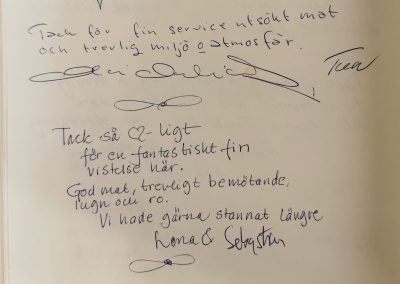 Tack för fin service utsökt mat
och trevlig miljö o atmosfär.
Tack så ♡-ligt
för en fantastiskt fin
vistelse här.
God mat, trevligt bemötande,
lugn och ro.
Vi hade gärna stannat längre
Lena & Sebastian